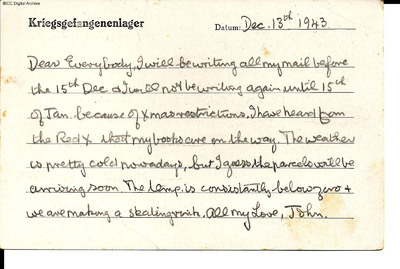 IBCC Digital Archive
Kriegsgefangenenlager
Datum: Dec. 13th 1943
Dear Everybody, I will be writing all my mail before
the 15th Dec & I will not be writing again until 15th
of Jan. because of Xmas restrictions. I have heard from
the Red X that my books are on the way. The weather
is pretty cold nowadays, but I guess the parcels will be
arriving soon. The temp. is consistantly below zero +
we are making a skating rink. All my Love, John.